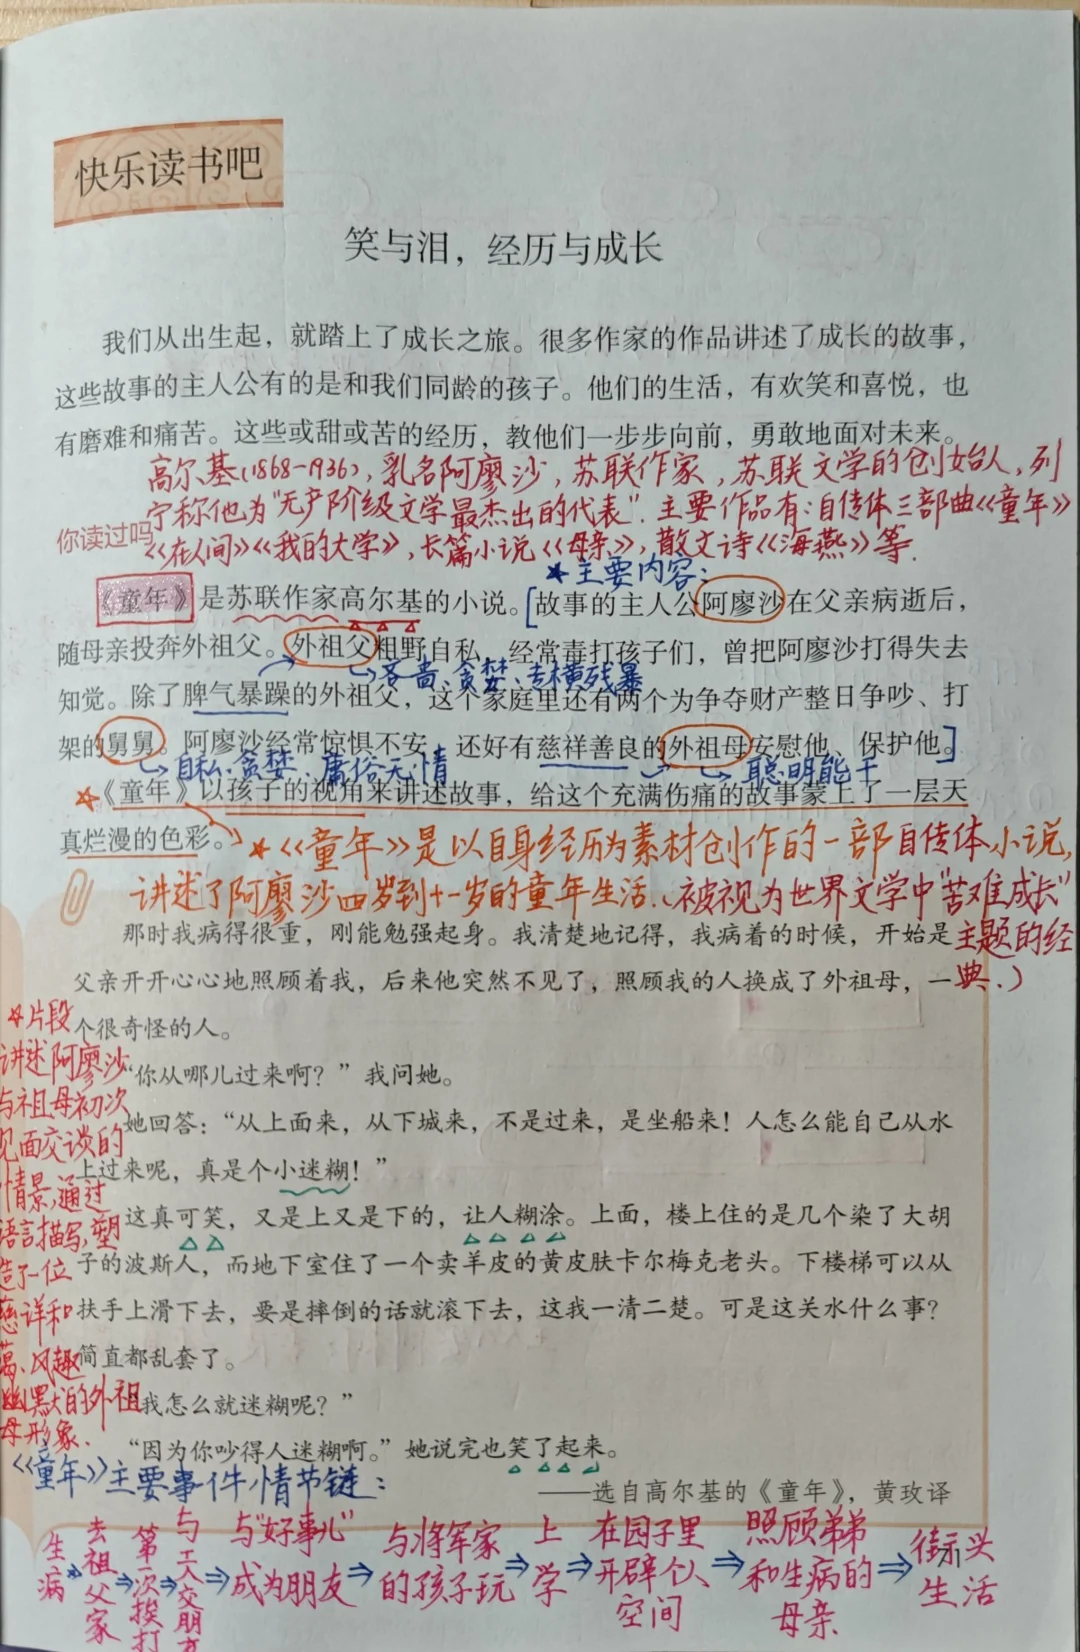 快乐读书吧
笑与泪，经历与成长
我们从出生起，就踏上了成长之旅。很多作家的作品讲述了成长的故事，
这些故事的主人公有的是和我们同龄的孩子。他们的生活，有欢笑和喜悦，也
有磨难和痛苦。这些或甜或苦的经历，教他们一步步向前，勇敢地面对未来。
高尔基(1868-1936)，乳名阿廖沙，苏联作家，苏联文学的创始人，列
宁称他为"无产阶级文学最杰出的代表"．主要作品有：自传体三部曲《童年》
你读过吗
《在人间》《我的大学》，长篇小说《母亲》，散文诗《海燕》等．
★主要内容：
《童年》是苏联作家高尔基的小说。[故事的主人公阿廖沙在父亲病逝后，
随母亲投奔外祖父。外祖父粗野自私，经常毒打孩子们，曾把阿廖沙打得失去
吝啬、贪婪、专横残暴
知觉。除了脾气暴躁的外祖父，这个家庭里还有两个为争夺财产整日争吵、打
架的舅舅。阿廖沙经常惊惧不安，还好有慈祥善良的外祖母安慰他、保护他。]
自私、贪婪 庸俗无情
聪明能干
★《童年》以孩子的视角来讲述故事，给这个充满伤痛的故事蒙上了一层天
真烂漫的色彩。
★《童年》是以自身经历为素材创作的一部自传体小说，
讲述了阿廖沙四岁到十一岁的童年生活．(被视为世界文学中"苦难成长"
主题的经
典．)
那时我病得很重，刚能勉强起身。我清楚地记得，我病着的时候，开始是
父亲开开心心地照顾着我，后来他突然不见了，照顾我的人换成了外祖母，一
个很奇怪的人。
“你从哪儿过来啊？”我问她。
她回答：“从上面来，从下城来，不是过来，是坐船来！人怎么能自己从水
上过来呢，真是个小迷糊！”
这真可笑，又是上又是下的，让人糊涂。上面，楼上住的是几个染了大胡
子的波斯人，而地下室住了一个卖羊皮的黄皮肤卡尔梅克老头。下楼梯可以从
扶手上滑下去，要是摔倒的话就滚下去，这我一清二楚。可是这关水什么事？
简直都乱套了。
“我怎么就迷糊呢？”
“因为你吵得人迷糊啊。”她说完也笑了起来。
——选自高尔基的《童年》，黄玫译
★片段
讲述阿廖沙
与祖母初次
见面交谈的
情景，通过
语言描写，塑
造了一位
慈详和
蔼、风趣
幽默的外祖
母形象．
《童年》主要事件情节链：
生病⇒去祖父家⇒第一次挨打⇒与工人交朋友⇒与"好事儿"成为朋友⇒与将军家的孩子玩⇒上学⇒在园子里开辟个人空间⇒照顾弟弟和生病的母亲⇒街头生活